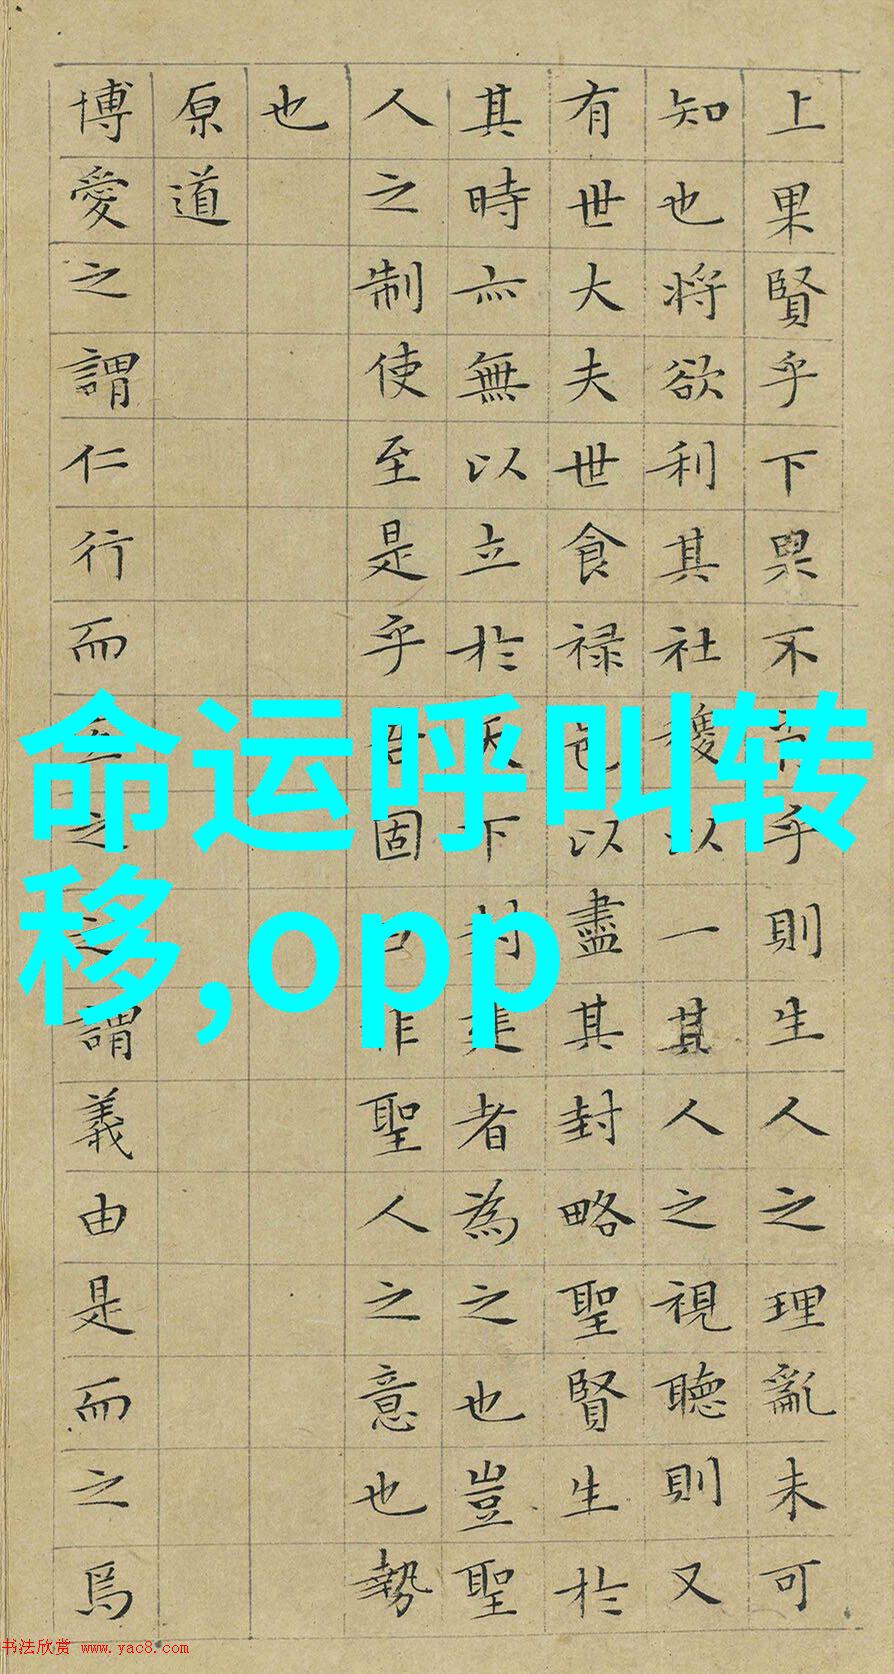 上果賢乎下果不肖乎則生人之理亂未可
知也将欲利其社稷以一其人之視聽則又
有世大夫世食禄邑以盡其封略聖賢生於
其時亦無以立於天下封建者為之也豈聖
人之制使至是乎吾固曰非聖人之意也勢
也
原道
博愛之謂仁行而宜之之謂義由是而之焉
命运呼叫转
移,opp
书法欣赏 www.yac8.com